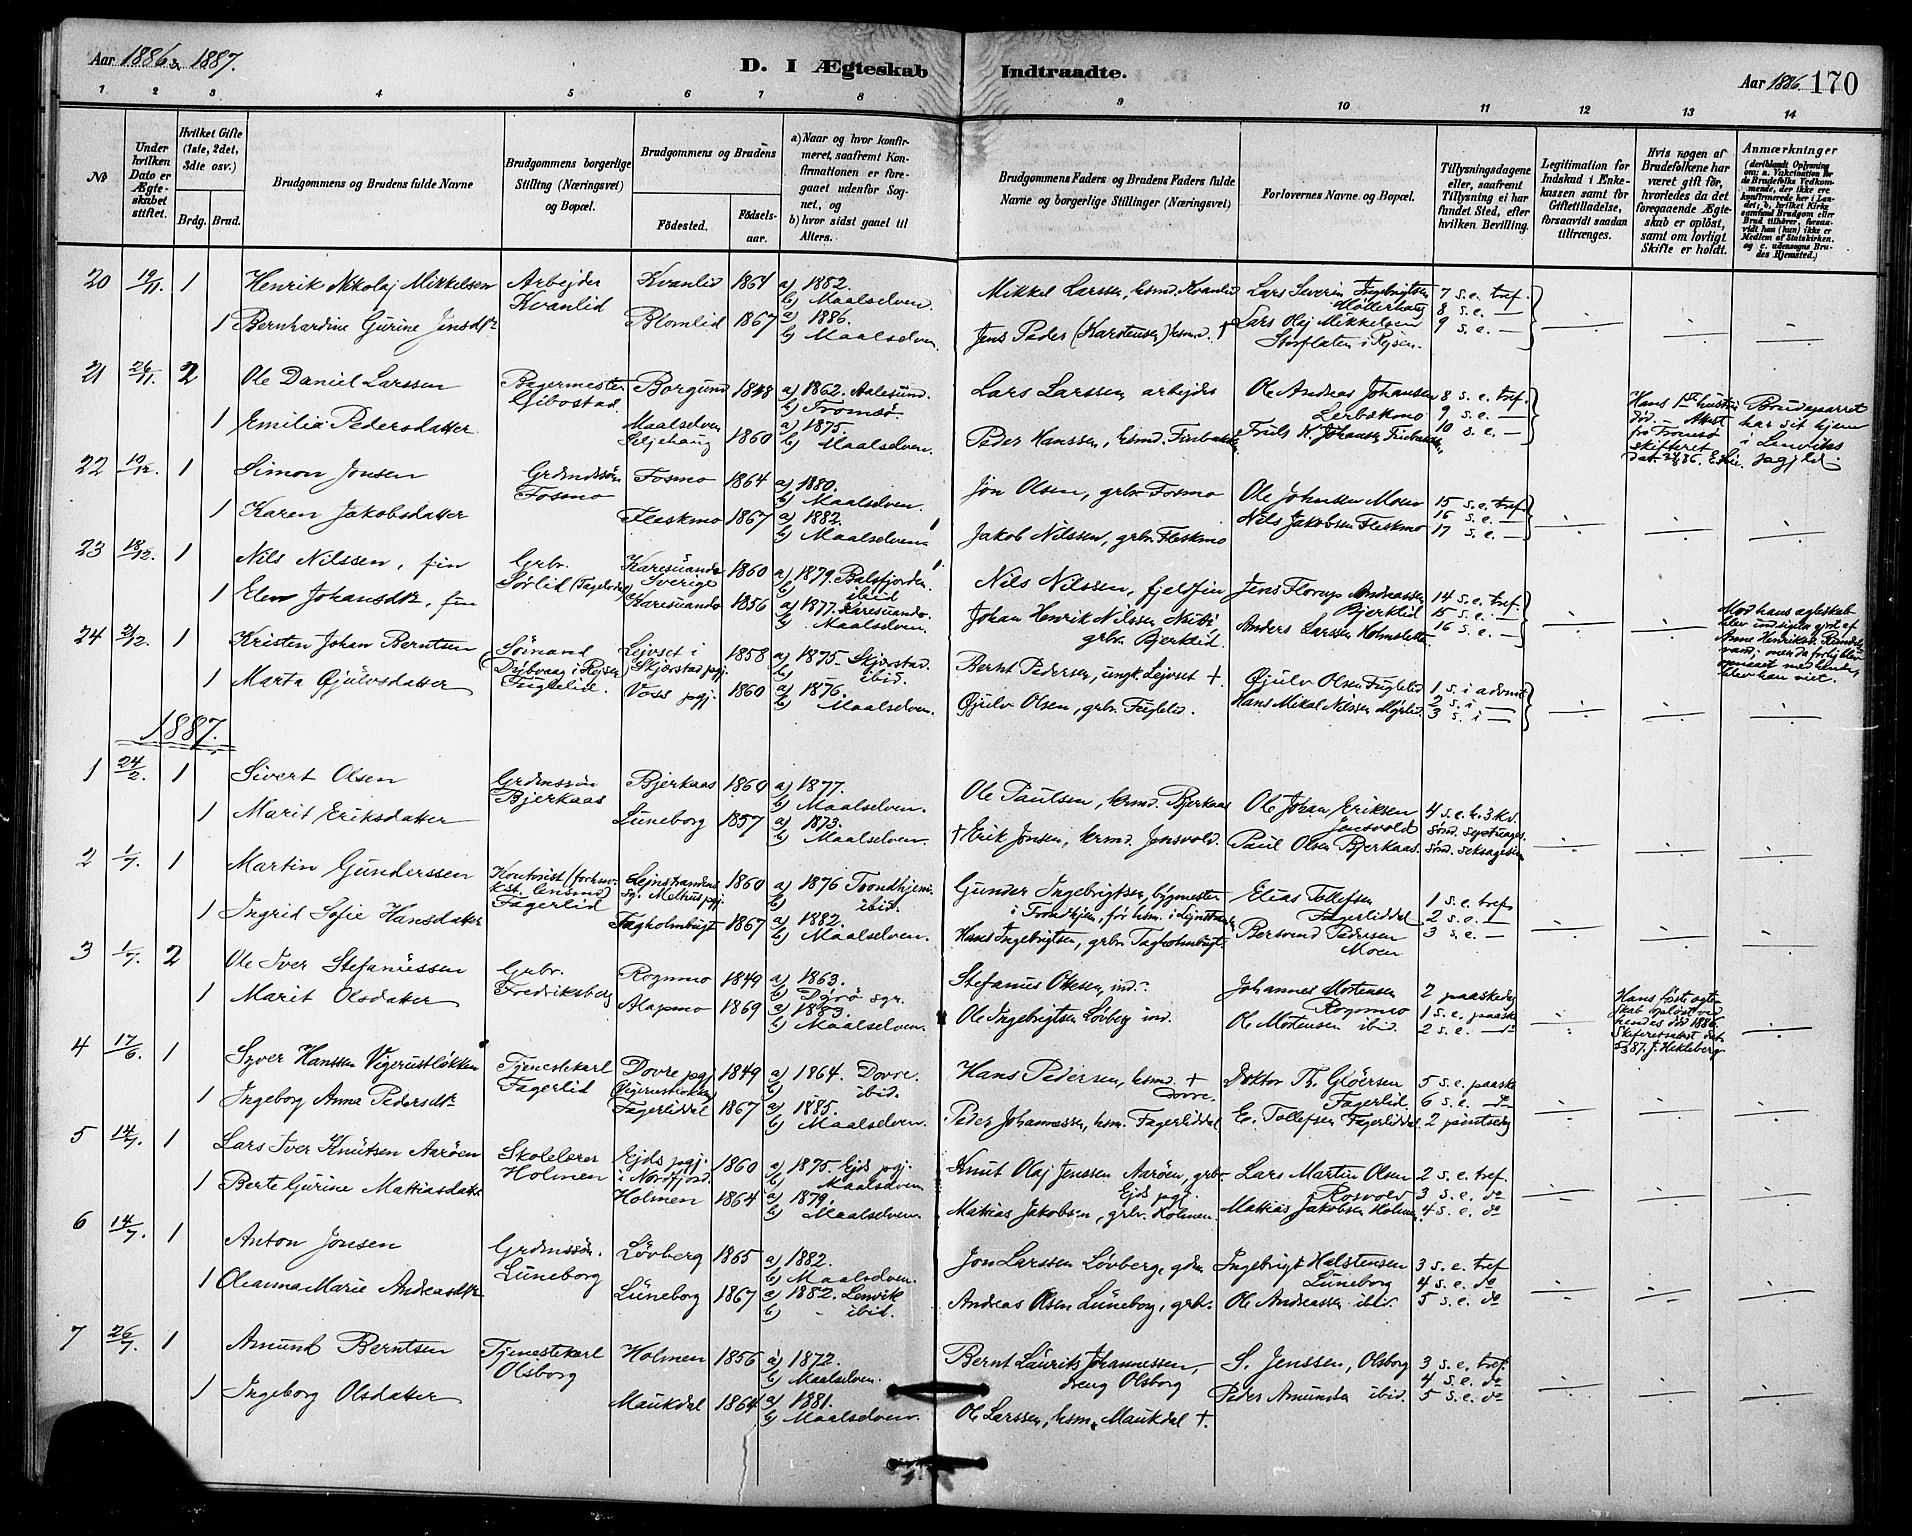 Aar 1886 & 1887.
D. I Ægteskab Indtraadte.
Aar 1886. 170
1 2 3 4 5 6 7 8 9 10 11 12 13 14
No
Under hvilken Dato er Ægteskabet stiftet.
Hvilket Gifte (1ste, 2det, 3die osv.)
Brdg. Brud.
Brudgommens og Brudens fulde Navne
Brudgommens borgerlige Stilling (Næringsvei) og Bopæl.
Brudgommens og Brudens
Fødested. Fødselsaar.
a) Naar og hvor konfirmeret, saafremt Konfirmationen er foregaaet udenfor Sognet, og
b) hvor sidst gaaet til Alters.
Brudgommens Faders og Brudens Faders fulde Navne og borgerlige Stillinger (Næringsvei)
Forlovernes Navne og Bopæl.
Tillysningsdagene eller, saafremt Tillysning ei har fundet Sted, efter hvilken Bevilling.
Legitimation for Indskud i Enkekassen samt for Giftetilladelse, forsaavidt saadan tiltrænges.
Hvis nogen af Brudefolkene har været gift før, hvorledes da det foregaaende Ægteskab er opløst, samt om lovligt Skifte er holdt.
Anmærkninger (deriblandt Oplysning om: a. Vaccination for de Brudefolks Vedkommende, der ikke ere konfirmerede her i Landet; b. hvilket Kirkesamfund Brudgom eller Brud tilhører, forsaavidt han (hun) ikke er Medlem af Statskirken, og c. udensogns Brudes Hjemsted.)
20 19/11. 1 Henrik Nikolaj Mikkelsen Arbejder Kvanlid Kvanlid 1864 a) 1882. b) Maalselven. Mikkel Larssen, husmd. Kvanlid Lars Severin Ingebrigtsen Møllerhaug 7 s.e. tref.
1 Bernhardine Gurine Jensdtr Blomlid 1867 a) 1886. b) Maalselven. Jens Peder (Karstensen) husmd. † Lars Olaj Mikkelsen Storflaten i Rejsen. 8 s.e. — 9 s.e. —
21 26/11. 2 Ole Daniel Larssen Bagermester Gibostad. Borgund 1848 a) 1862. Aalesund. b) Tromsø. Lars Larssen, arbejder Ole Andreas Johansen Lerbskmo 8 s.e. tref. 9 s.e. —
Hans 1ste hustru død. Attest fra Tromsø skifteret
Brudeparret har sit hjem i Lenviks
1 Emilia Pedersdatter Maalselven Seljehaug 1860 a) 1875. b) Maalselven. Peder Hanssen, husmd. Finbakken 10 s.e. —
22 19/12. 1 Simon Jonsen Grdmdssøn Fosmo Fosmo 1864 a) 1880. b) Maalselven. Jon Olsen, grbr. Fosmo Ole Johnsen Moen 15 s.e. tref
1 Karen Jakobsdatter Fleskmo 1867 a) 1882. b) Maalselven. Jakob Nilssen, grbr. Fleskmo Nils Jakobsen Fleskmo 16 s.e. — 17 s.e. —
23 18/12. 1 Nils Nilssen, fin Grbr. Sørlid (Fagerlid) Karesuando Sverige 1860 a) 1879. Balsfjorden. b) ibid Nils Nilssen, fjeldfin Jens Florup Andreassen Bjerklid 14 s.e. tref.
1 Elen Johansdtr, fin Karesuando 1856 a) 1877. Karesuando. b) Maalselven. Johan Henrik Nilssen grbr. Bjerklid. Anders Larssen Holmslette 15 s.e. — 16 s.e. —
24 2/12. 1 Kristen Johan Berntsen Sømand Dybvaag i Rejsen Fuglelid. Lejvset i Skjærstad pgj. 1858 a) 1875 - Skjærstad. b) ibid. Bernt Pedersen, ungk Lejvset †. Øjulv Olsen Fuglelid 1 s. i advent
Mod hans ægteskab blev indsigelse gjort af Anne Henriksd.
1 Marta Øjulvsdatter Voss pgj. 1860 a) 1876. b) Maalselven. Øjulv Olsen, grbr. Fuglelid. Hans Mikal Nilssen Myrlid. 2 s. i — 3 s. i —
1887.
1 24/2. 1 Sivert Olsen Grdmssøn Bjerkaas Bjerkaas 1860 a) 1877. b) Maalselven. Ole Paulsen, husmd. Bjerkaas Ole Johan Eriksen Jensvold 4 s.e. h. 3 kv.
1 Marit Eriksdatter Luneborg 1857 a) 1873. b) Maalselven. † Erik Jonsen, husmd. Jensvold. Paul Olsen Bjerkaas. sønd. septuages. sønd. seksagesima
2 1/7. 1 Martin Gunderssen Kontorist Fagerlid Lejnstrandens sg. Melhus pgj. 1860 a) 1876 Trondhjem. b) ibid. Gunder Ingebrigtsen, bygmester i Trondhjem, før husm. i Lejnstranden Elias Tollefsen Fagerliddal 1 s.e. tref. 2 s.e. —
1 Ingrid Sofie Hansdatter Fagholmbugt 1867 a) 1882. b) Maalselven. Hans Ingebrigtsen, grbr. Fagholmbugt Bersvend Pedersen Moen 3 s.e. —
3 1/7. 2 Ole Iver Stefanussen Grbr. Fredriksberg Rognmo 1849 a) 1863. b) Dyrø sgn. Stefanus Olsen, ind. Johannes Mortensen Rognmo 2 paaskedag
Hans første ægteskab opløst ved hendes død 1886.
1 Marit Olsdatter Alapmo 1869 a) 1883. b) Maalselven. Ole Ingebrigtsen Løvberg ind. Ole Mortensen ibid. 1 s.e. paaske 2 s.e. —
4 17/6. 1 Syver Hanssen Vigerustløkken Tjenestekarl Fagerlid Dovre pgj (Vigerustløkken) 1849 a) 1864. Dovre. b) ibid. Hans Pedersen, husmd. † Dovre. Doktor Th. Gløersen Fagerlid. 5 s.e. paaske
1 Ingeborg Anna Pedersdtr Fagerliddal 1867 a) 1885. b) Maalselven. Peder Johannessen, husm. Fagerliddal E. Tollefsen Fagerliddal 6 s.e. — 2 pintsedag
5 14/7. 1 Lars Iver Knutsen Aarøen Skolelærer Holmen Ejds pgj. i Nordfjord. 1860 a) 1875. Ejds pgj. b) Maalselven. Knut Olaj Jenssen Aarøen, grbr. Ejds pgj. Lars Martin Olsen Rosvold 2 s.e. tref.
1 Berte Gurine Mattiasdatter Holmen 1864 a) 1879. b) Maalselven. Mattias Jakobsen, grbr. Holmen. Mattias Jakobsen Holmen 3 s.e. do 4 s.e. do
6 14/7. 1 Anton Jonsen Grdmssøn. Luneborg Løvberg 1865 a) 1882. b) Maalselven. Jon Larssen Løvberg, gdm. Ingebrigt Halstensen Luneborg 3 s.e. tref
1 Oleanna Marie Andreasdtr Luneborg 1867 a) 1882. Lenvik b) - ibid. Andreas Olsen Luneborg, grbr. Ole Andreassen ibid. 4 s.e. do 5 s.e. do
7 26/7. 1 Amund Berntsen Tjenestekarl Olsborg Holmen 1856 a) 1872. b) Maalselven. Bernt Laurits Johannessen, dreng Olsborg S. Jenssen, Olsborg 3 s.e. tref.
1 Ingeborg Olsdatter Maukdal 1864 a) 1881. b) Maalselven. Ole Larssen, husm. Maukdal †. Peder Amundsen ibid. 4 s.e. do 5 s.e. do